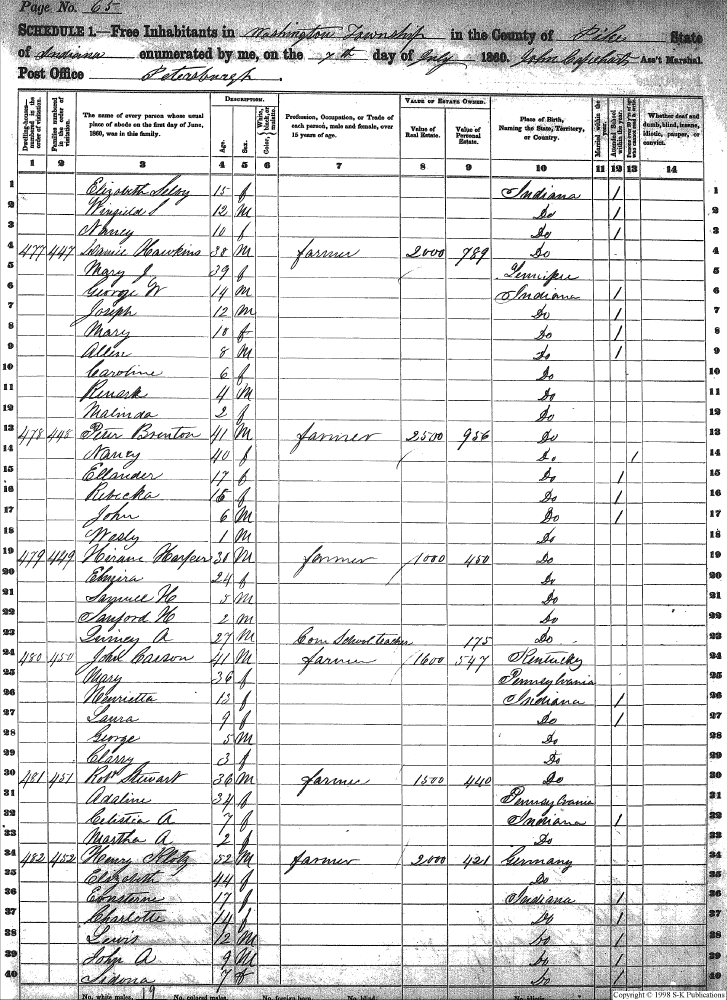 Page No. 65
SCHEDULE 1.—Free Inhabitants in Washington Township in the County of Pike State
of Indiana enumerated by me, on the 7th day of July 1860. John Capehart Ass't Marshal.
Post Office Petersburgh.
DESCRIPTION. VALUE OF ESTATE OWNED.
Dwelling-houses— numbered in the order of visitation. Families numbered in the order of visitation. The name of every person whose usual place of abode on the first day of June, 1860, was in this family. Age. Sex. Color, White, black, or mulatto. Profession, Occupation, or Trade of each person, male and female, over 15 years of age. Value of Real Estate. Value of Personal Estate. Place of Birth, Naming the State, Territory, or Country. Married within the year. Attended School within the year. Whether deaf and dumb, blind, insane, idiotic, pauper, or convict.
1 2 3 4 5 6 7 8 9 10 11 12 13 14
1 Elizabeth Selby 15 f Indiana / 1
2 Winfield S 12 M Do / 2
3 Nancy 10 f Do / 3
4 477 447 Hawkins 38 M farmer 2000 789 Do 4
5 Mary J 39 f 5
6 George W 14 M Indiana / 6
7 Joseph 12 M Do / 7
8 Mary 10 f Do / 8
9 Allen 8 M Do / 9
10 Caroline 6 f Do 10
11 4 M Do 11
12 Malinda 2 f Do 12
13 478 448 Peter Brenton 41 M farmer 2500 956 Do 13
14 Nancy 40 f Do / 14
15 Ellander 17 f Do / 15
16 Rebecka 15 f Do / 16
17 John 6 M Do / 17
18 Wesly 1 M Do 18
19 479 449 Hiram Harper 38 M farmer 1000 450 Do 19
20 Elmira 24 f Do 20
21 Samuel H 5 M Do 21
22 Sanford H 2 M Do 22
23 Quincy A 27 M Com School teacher 175 Do 23
24 480 450 John Carson 41 M farmer 1600 547 Kentucky 24
25 Mary 36 f Pennsylvania 25
26 Henrietta 13 f Indiana / 26
27 Laura 9 f Do / 27
28 George 5 M Do 28
29 Clarry 3 f Do 29
30 481 451 Robt Stewart 36 M farmer 1500 440 Do 30
31 Adaline 34 f Pennsylvania 31
32 Celistia A 7 f Indiana / 32
33 Martha A 2 f Do 33
34 482 452 Henry Klotz 52 M farmer 2000 421 Germany 34
35 Elizabeth 44 f Do 35
36 17 f Indiana / 36
37 Charlotte 14 f Do / 37
38 Lewis 12 M Do / 38
39 John A 9 M Do / 39
40 Sidona 7 f Do / 40
No. white males, 19 No. colored males, No. foreign born, No. blind,
Copyright © 1998 S-K Publications